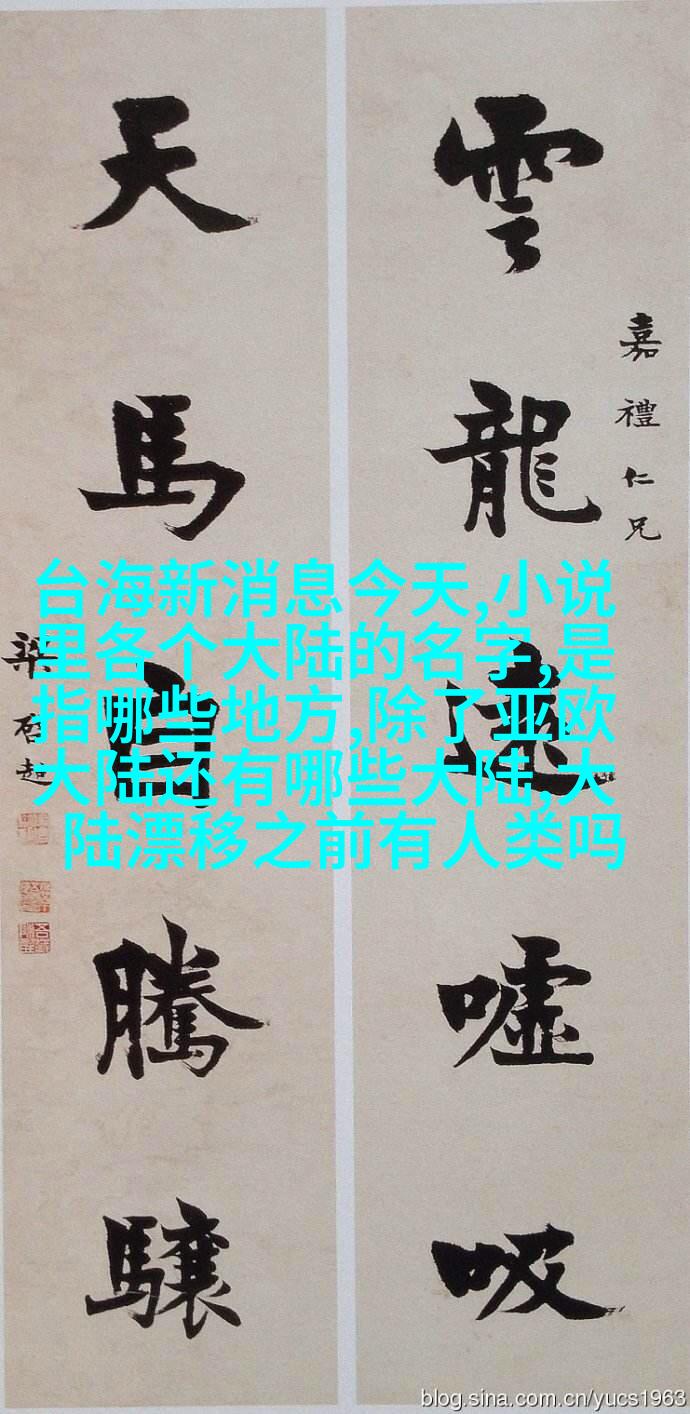 嘉禮仁兄
雲龍遠噓吸
天馬自騰驤
梁啓超
台海新消息今天,小说
里各个大陆的名字,是
指哪些地方,除了亚欧
大陆还有哪些大陆,大
陆漂移之前有人类吗
blog.sina.com.cn/yucs1963